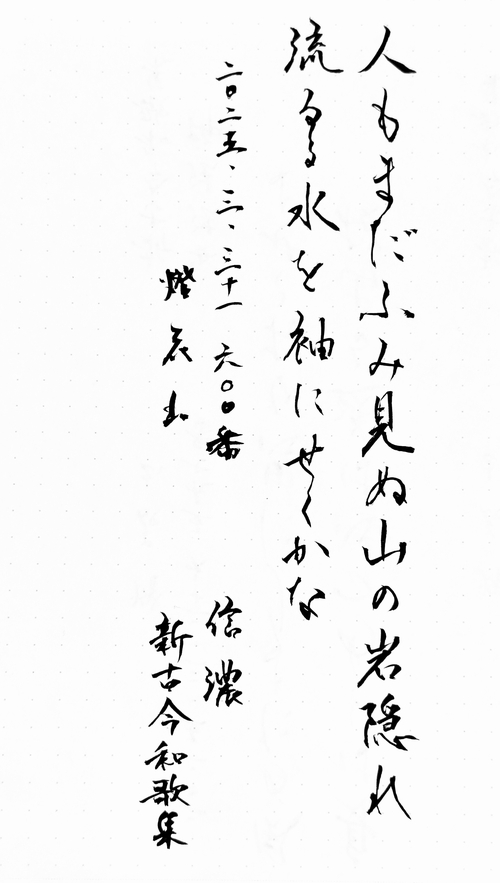 人もまだふみ見ぬ山の岩隠れ
流るる水を袖にせくかな
二〇二五、三、三十一 六〇〇番
信濃
新古今和歌集